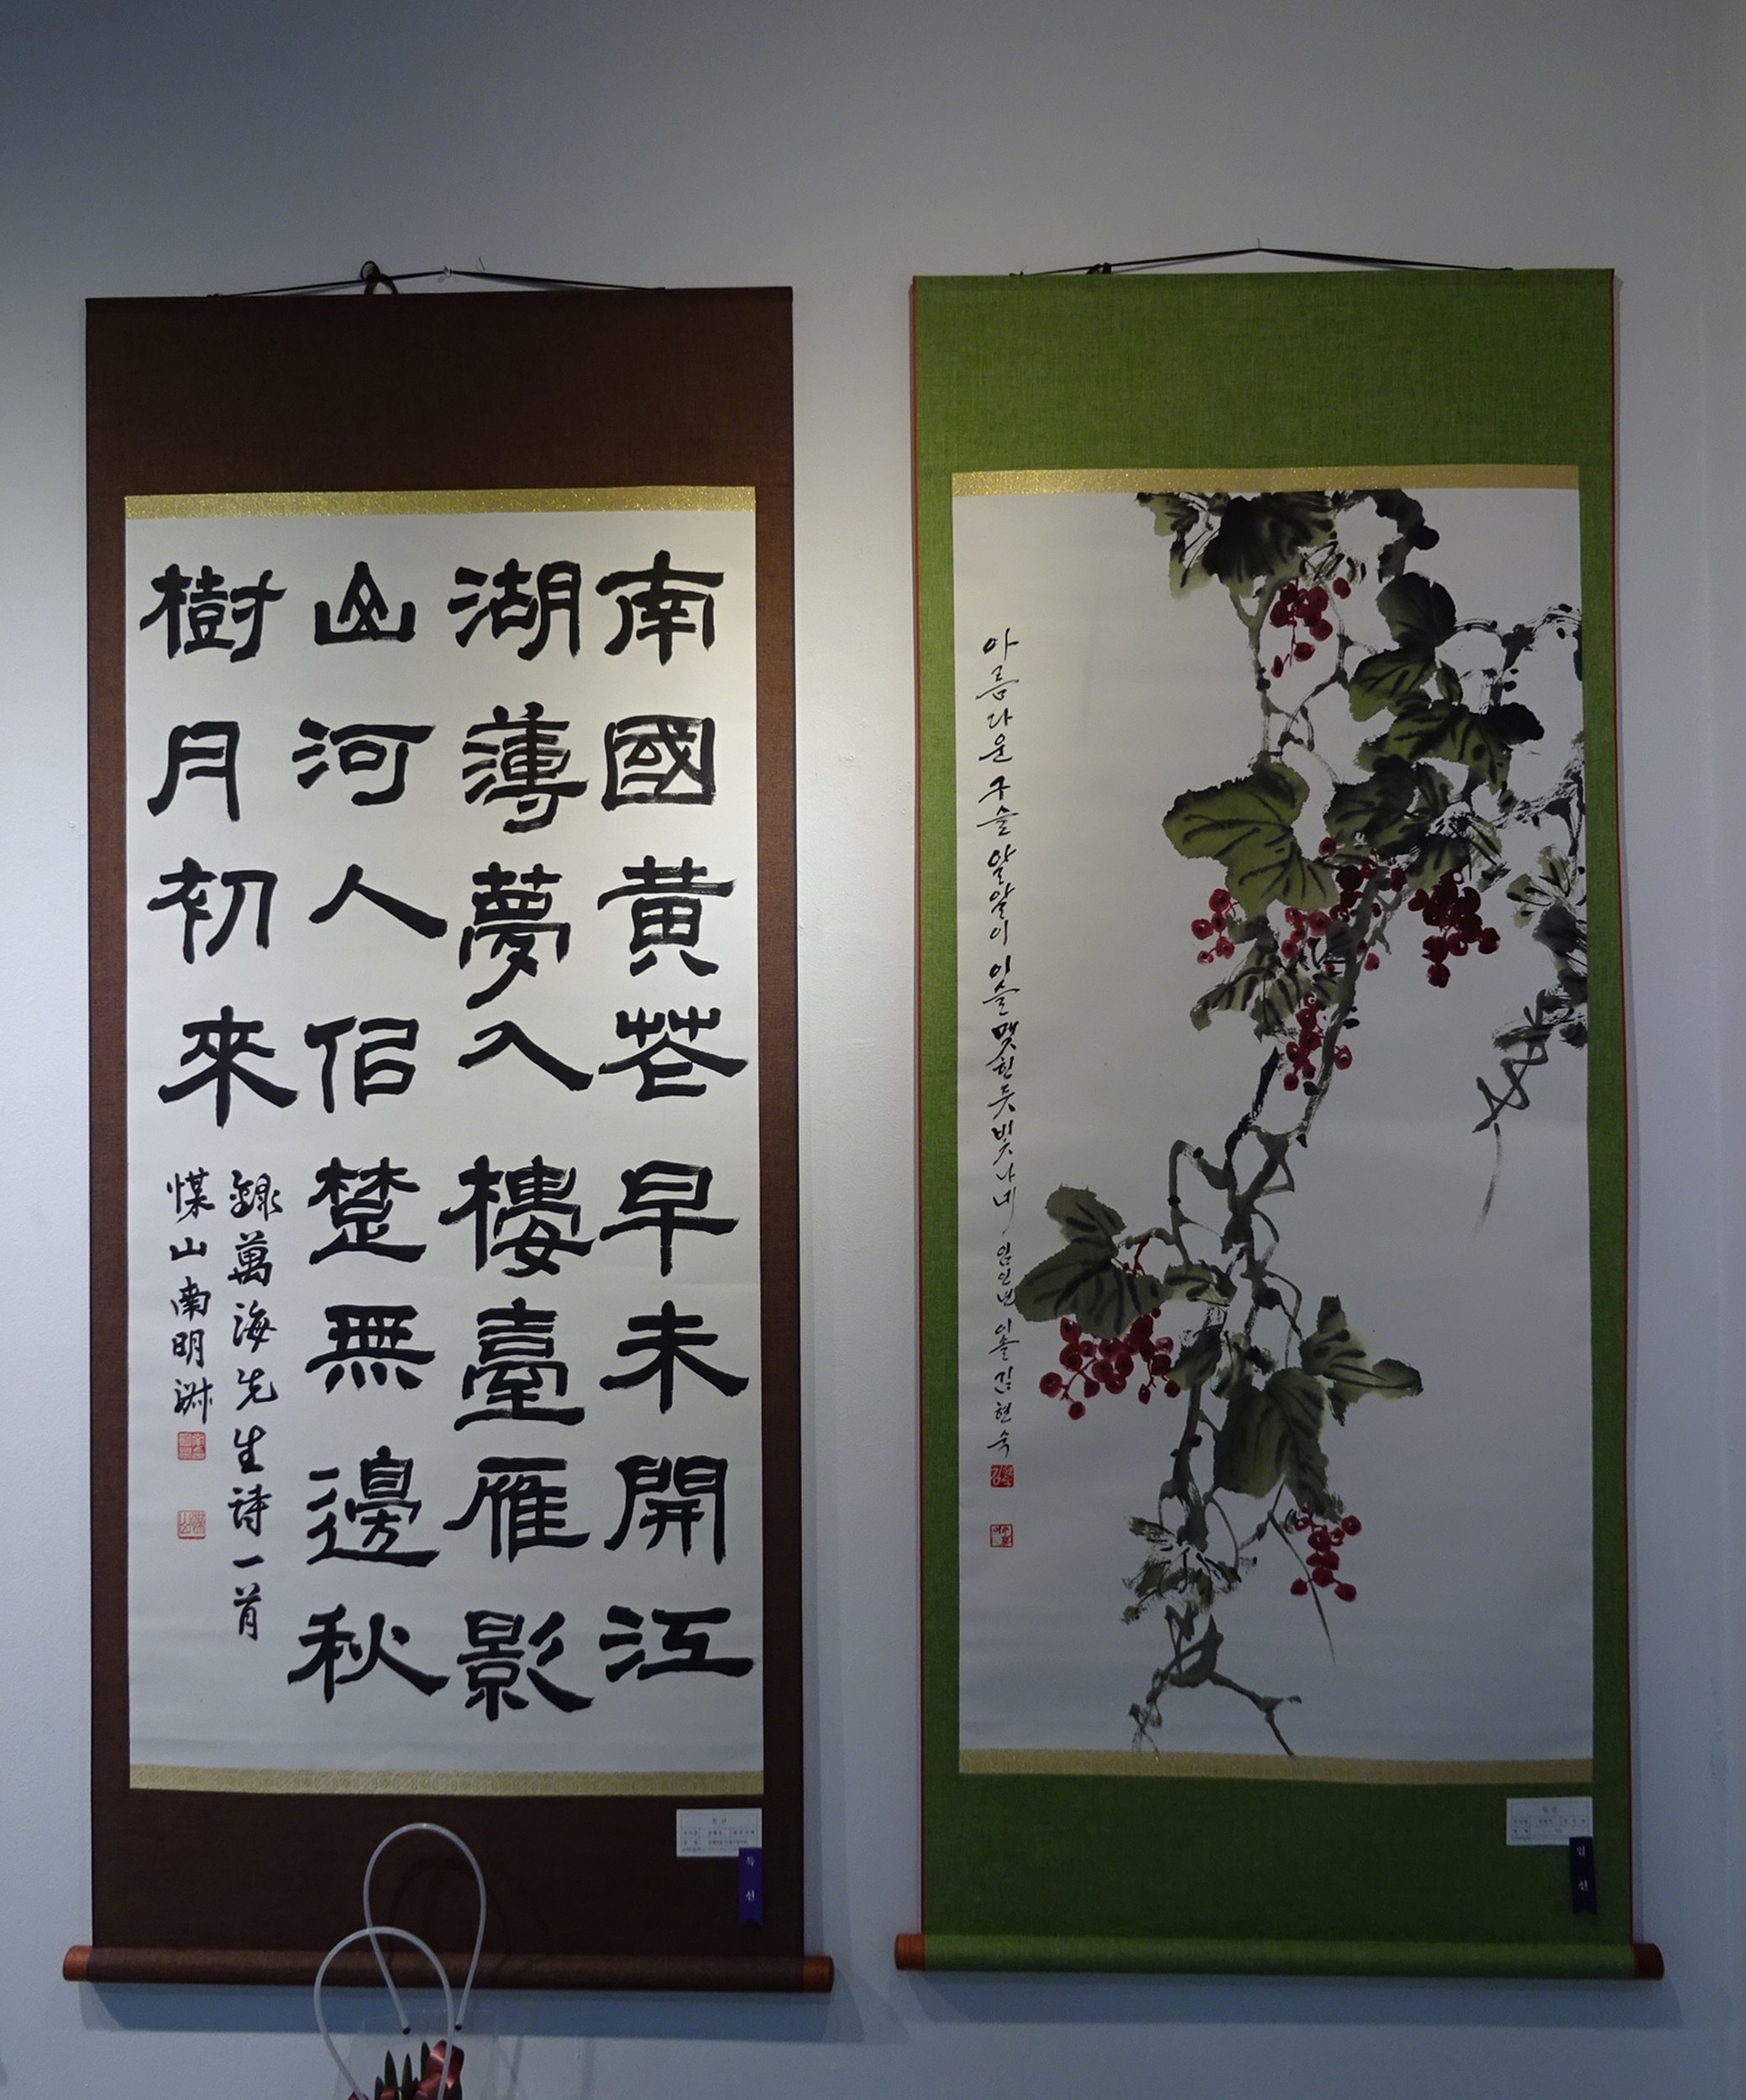 南國黃花早未開江
湖薄夢入樓臺雁影
山河人佀楚無邊秋
樹月初來
錄萬海先生詩一首
山南明淑
아름다운 구슬 알알이 이슬 맺힌 듯 빛나네, 임인년 이솔 김현숙
특선
입선